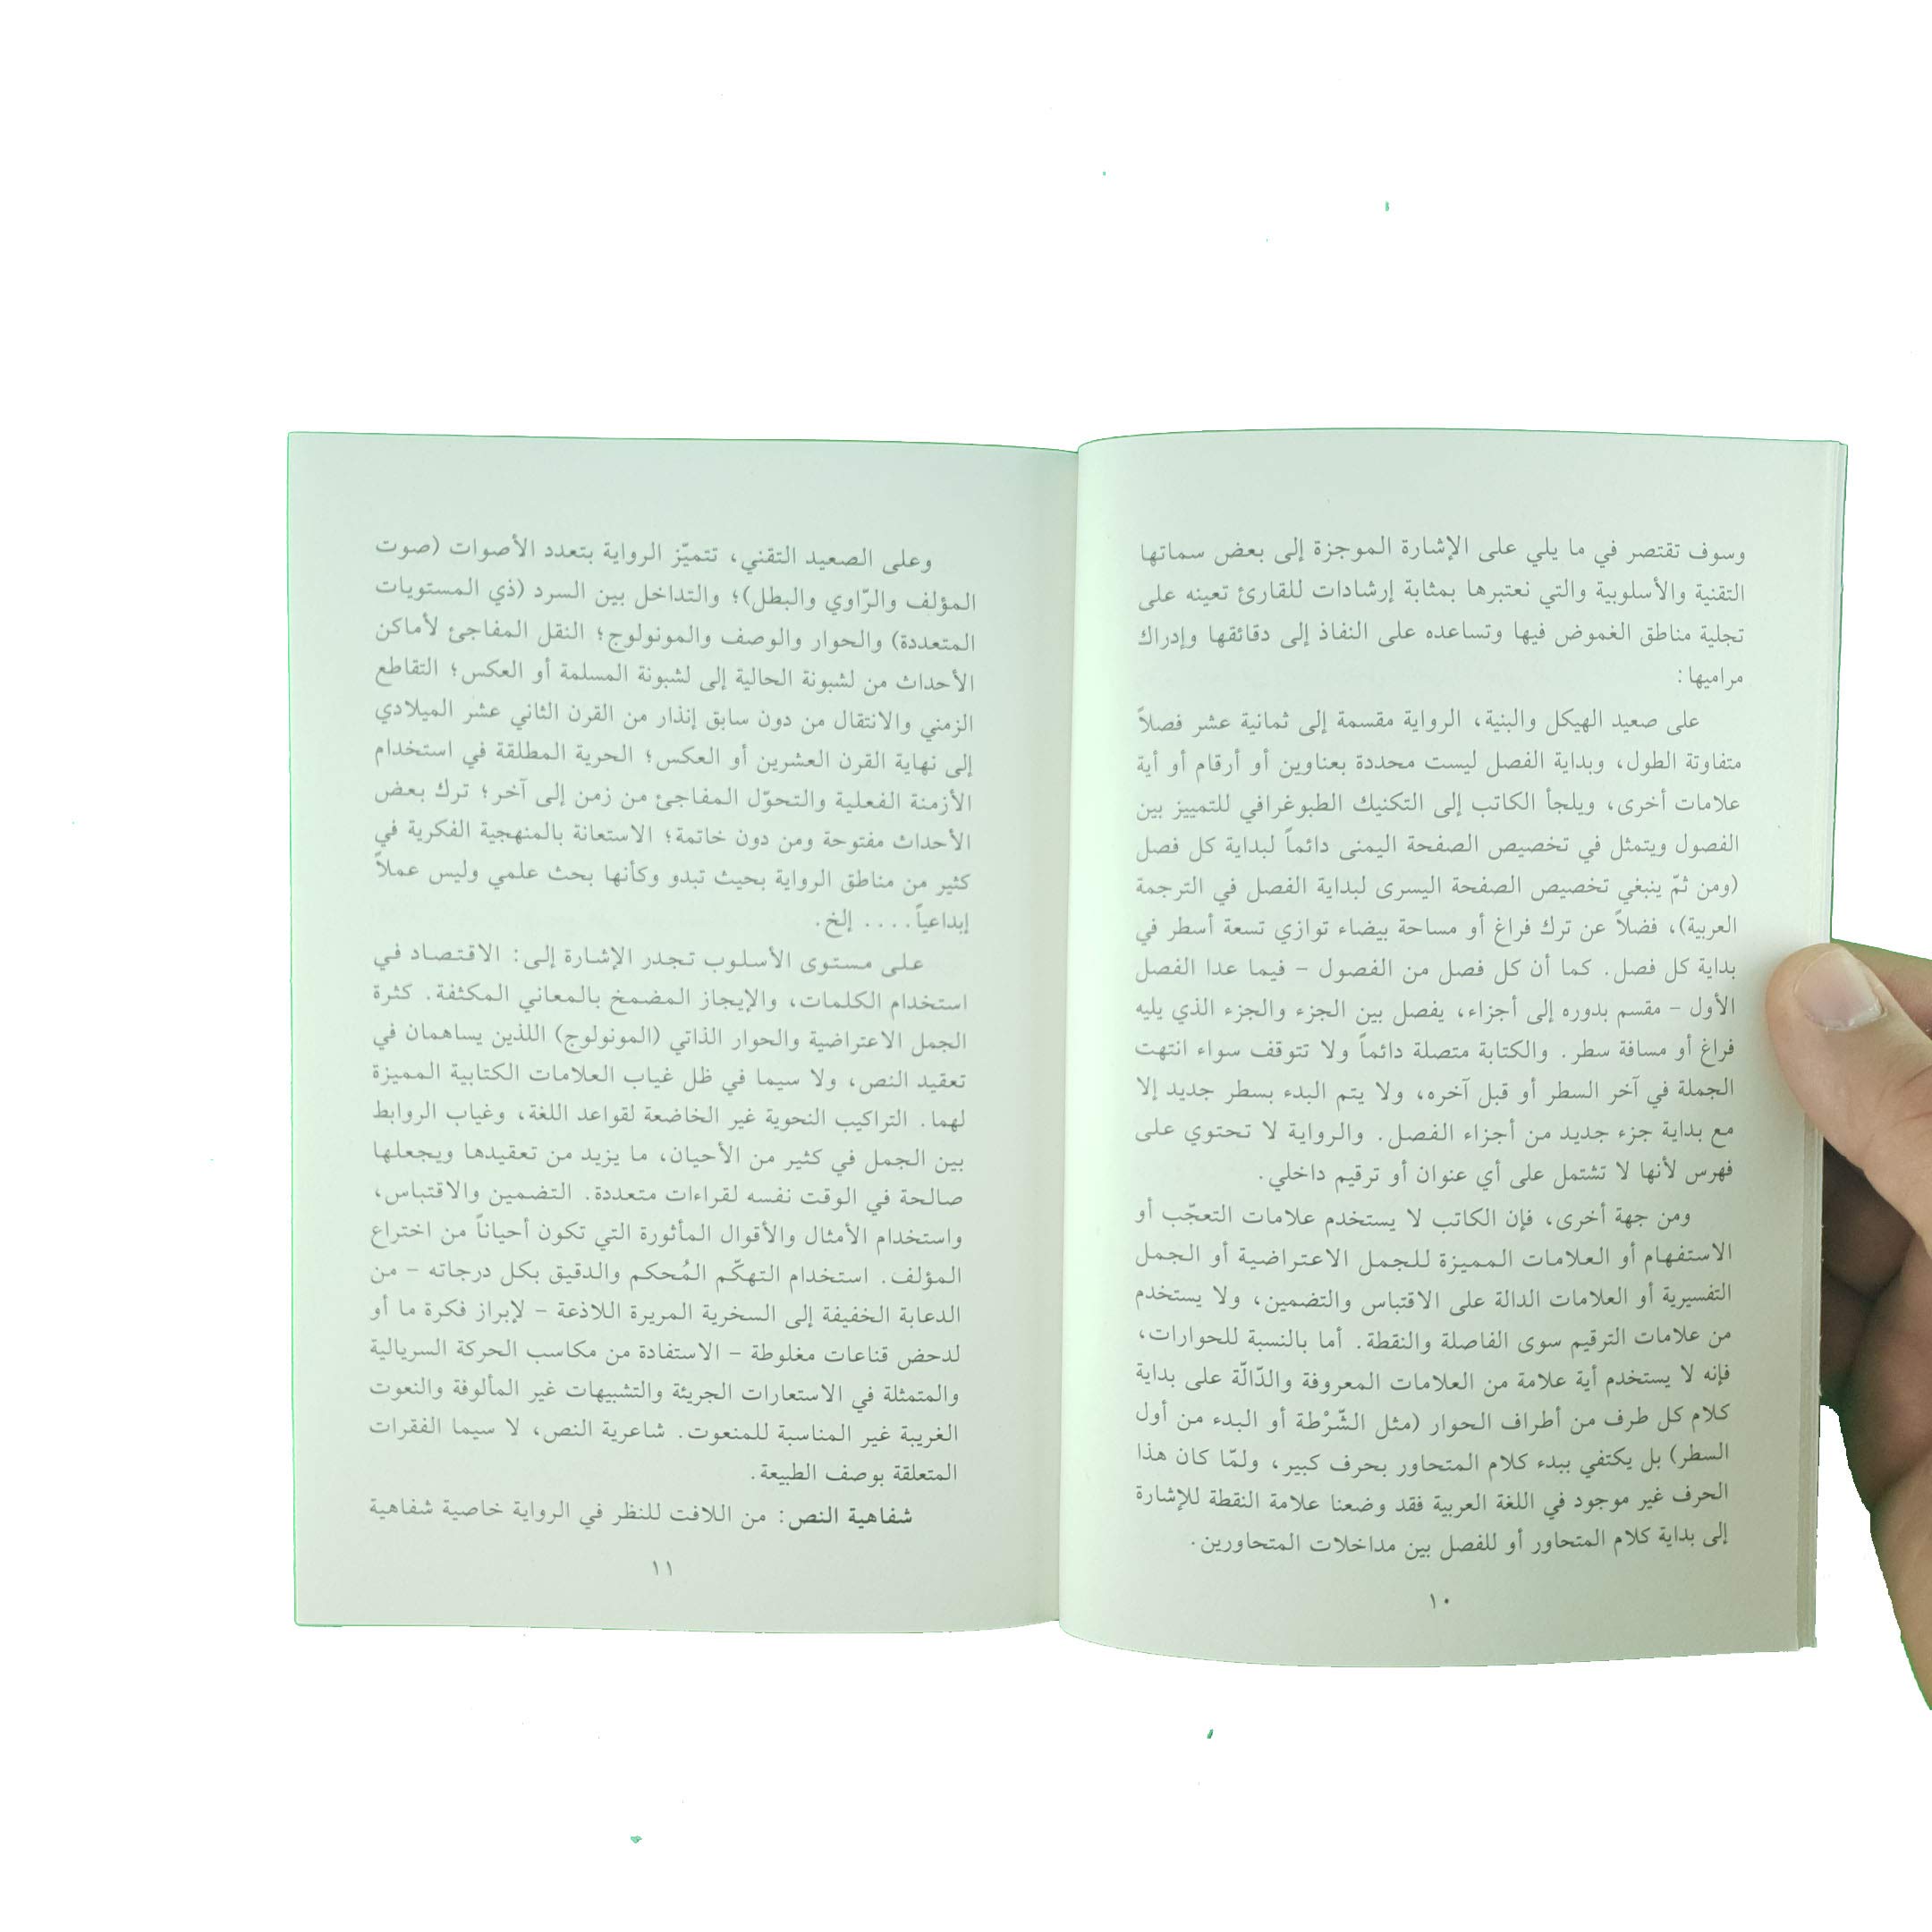 وسوف تقتصر في ما يلي على الإشارة الموجزة إلى بعض سماتها
التقنية والأسلوبية والتي نعتبرها بمثابة إرشادات للقارئ تعينه على
تجلية مناطق الغموض فيها وتساعده على النفاذ إلى دقائقها وإدراك
مراميها:
على صعيد الهيكل والبنية، الرواية مقسمة إلى ثمانية عشر فصلاً
متفاوتة الطول، وبداية الفصل ليست محددة بعناوين أو أرقام أو أية
علامات أخرى، ويلجأ الكاتب إلى التكنيك الطبوغرافي للتمييز بين
الفصول ويتمثل في تخصيص الصفحة اليمنى دائماً لبداية كل فصل
(ومن ثمّ ينبغي تخصيص الصفحة اليسرى لبداية الفصل في الترجمة
العربية)، فضلاً عن ترك فراغ أو مساحة بيضاء توازي تسعة أسطر في
بداية كل فصل. كما أن كل فصل من الفصول – فيما عدا الفصل
الأول – مقسم بدوره إلى أجزاء، يفصل بين الجزء والجزء الذي يليه
فراغ أو مسافة سطر. والكتابة متصلة دائماً ولا تتوقف سواء انتهت
الجملة في آخر السطر أو قبل آخره، ولا يتم البدء بسطر جديد إلا
مع بداية جزء جديد من أجزاء الفصل. والرواية لا تحتوي على
فهرس لأنها لا تشتمل على أي عنوان أو ترقيم داخلي.
ومن جهة أخرى، فإن الكاتب لا يستخدم علامات التعجّب أو
الاستفهام أو العلامات المميزة للجمل الاعتراضية أو الجمل
التفسيرية أو العلامات الدالة على الاقتباس والتضمين، ولا يستخدم
من علامات الترقيم سوى الفاصلة والنقطة. أما بالنسبة للحوارات،
فإنه لا يستخدم أية علامة من العلامات المعروفة والدّالّة على بداية
كلام كل طرف من أطراف الحوار (مثل الشّرْطة أو البدء من أول
السطر) بل يكتفي ببدء كلام المتحاور بحرف كبير، ولمّا كان هذا
الحرف غير موجود في اللغة العربية فقد وضعنا علامة النقطة للإشارة
إلى بداية كلام المتحاور أو للفصل بين مداخلات المتحاورين.
١٠
وعلى الصعيد التقني، تتميّز الرواية بتعدد الأصوات (صوت
المؤلف والرّاوي والبطل)؛ والتداخل بين السرد (ذي المستويات
المتعددة) والحوار والوصف والمونولوج؛ النقل المفاجئ لأماكن
الأحداث من لشبونة الحالية إلى لشبونة المسلمة أو العكس؛ التقاطع
الزمني والانتقال من دون سابق إنذار من القرن الثاني عشر الميلادي
إلى نهاية القرن العشرين أو العكس؛ الحرية المطلقة في استخدام
الأزمنة الفعلية والتحوّل المفاجئ من زمن إلى آخر؛ ترك بعض
الأحداث مفتوحة ومن دون خاتمة؛ الاستعانة بالمنهجية الفكرية في
كثير من مناطق الرواية بحيث تبدو وكأنها بحث علمي وليس عملاً
إبداعياً.... إلخ.
على مستوى الأسلوب تجدر الإشارة إلى: الاقتصاد في
استخدام الكلمات، والإيجاز المضمخ بالمعاني المكثفة. كثرة
الجمل الاعتراضية والحوار الذاتي (المونولوج) اللذين يساهمان في
تعقيد النص، ولا سيما في ظل غياب العلامات الكتابية المميزة
لهما. التراكيب النحوية غير الخاضعة لقواعد اللغة، وغياب الروابط
بين الجمل في كثير من الأحيان، ما يزيد من تعقيدها ويجعلها
صالحة في الوقت نفسه لقراءات متعددة. التضمين والاقتباس،
واستخدام الأمثال والأقوال المأثورة التي تكون أحياناً من اختراع
المؤلف. استخدام التهكّم المُحكم والدقيق بكل درجاته – من
الدعابة الخفيفة إلى السخرية المريرة اللاذعة – لإبراز فكرة ما أو
لدحض قناعات مغلوطة – الاستفادة من مكاسب الحركة السريالية
والمتمثلة في الاستعارات الجريئة والتشبيهات غير المألوفة والنعوت
الغريبة غير المناسبة للمنعوت. شاعرية النص، لا سيما الفقرات
المتعلقة بوصف الطبيعة.
شفاهية النص: من اللافت للنظر في الرواية خاصية شفاهية
١١